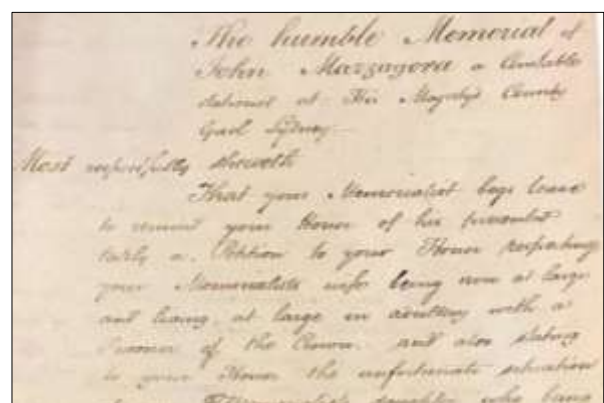 The humble Memorial of
John Mazzagora a Constable
stationed at His Majestys County
Gaol Sydney
Most respectfully sheweth
That your Memorialist begs leave
to remind your Honor of his
lately a Petition to your Honor respecting
your Memorialists wife being now at large
and living at large in adultery with a
Prisoner of the Crown. and also stating
to your Honor the unfortunate situation
Memorialist's daughter who being